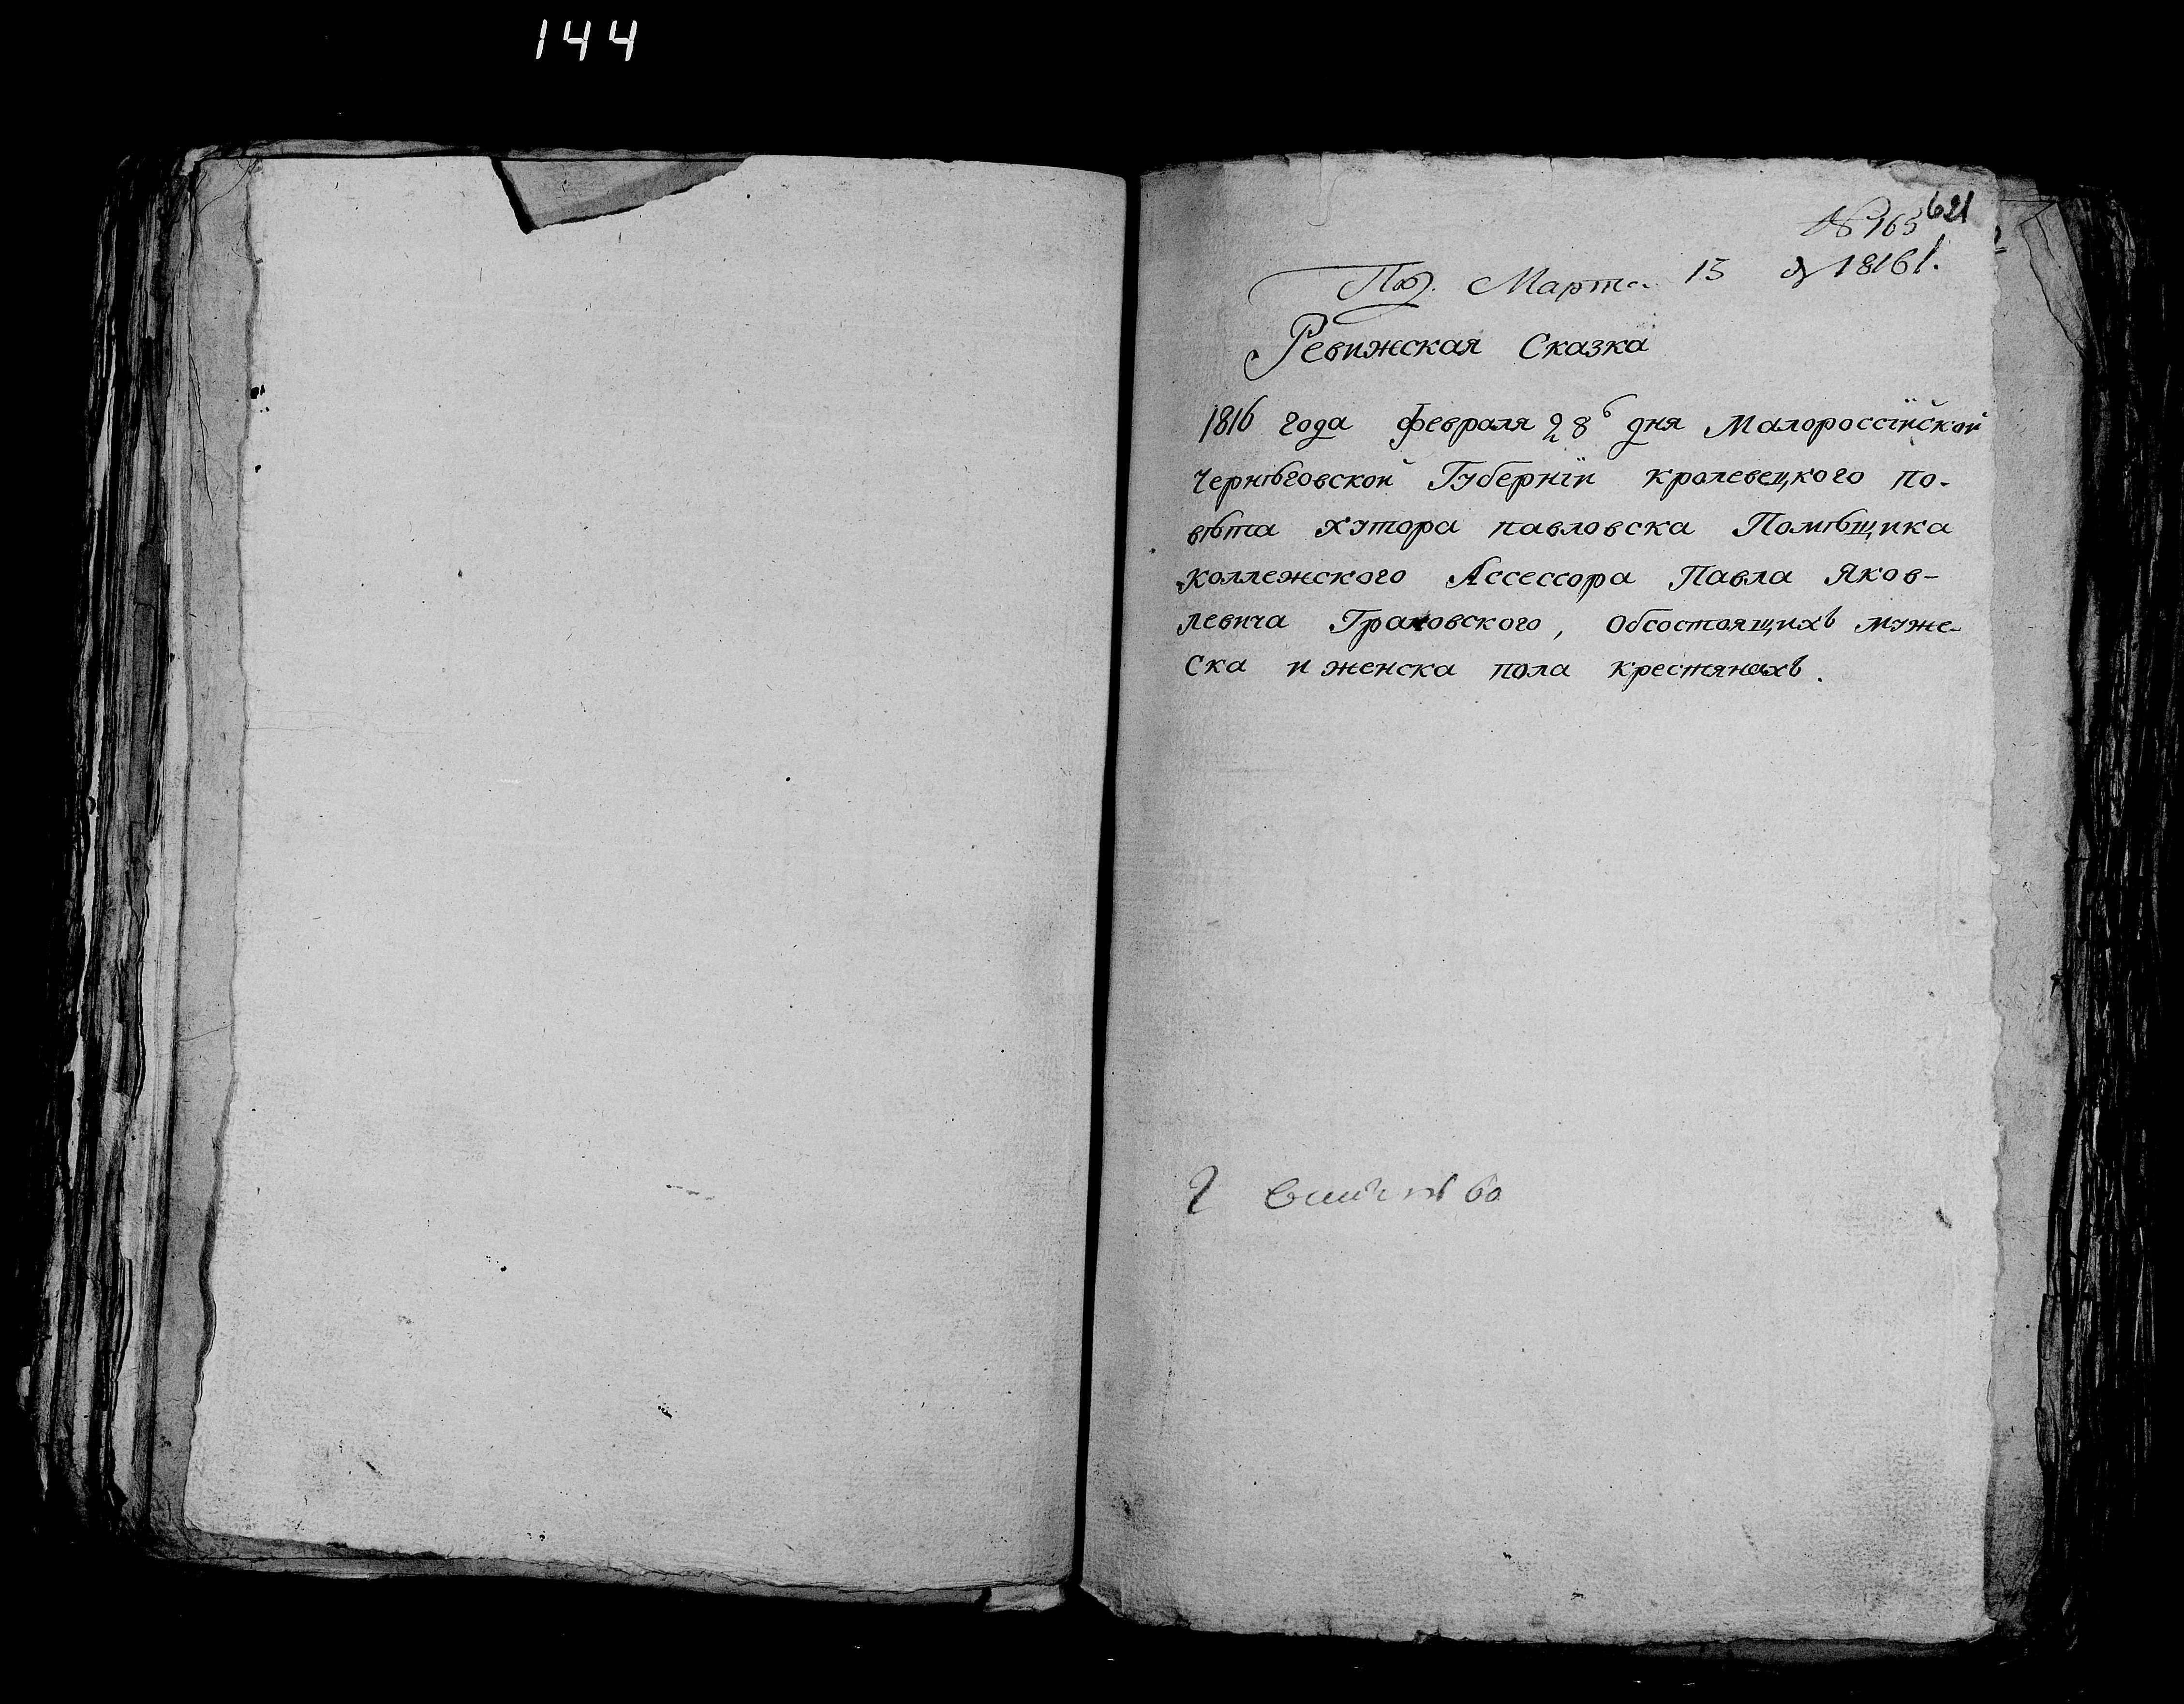 144
621
№ 165
Марта 15 1816
Ревижская Сказка
1816 года февраля 28 дня Малороссїйской
Чернѣговской Губернїи кролевецкого по-
вѣта хутора павловска Помѣщика
коллежского Ассессора Павла Яков-
левича Граховского, Обсостоящихъ муже-
ска и женска пола крестянахъ.